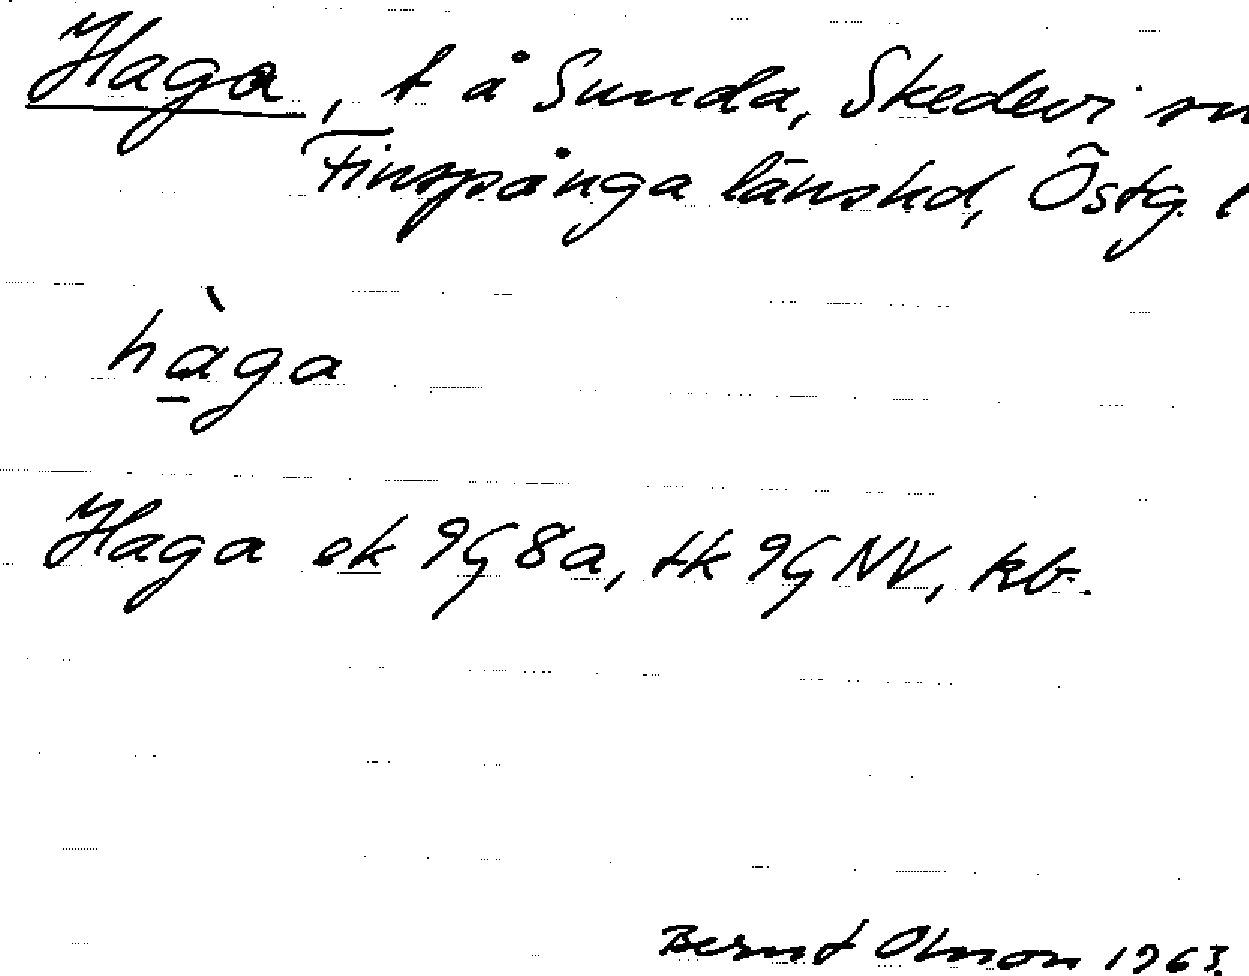 Haga, t å Sunda, Skedevi sn
Finspånga länshd, Östg. l
hàga
Haga ek 9G8a, tk 9GNV, kb.
Bernt Olsson 1963.